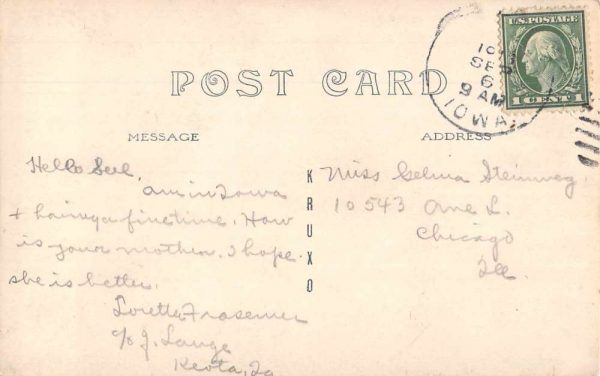 POST CARD
MESSAGE
Hello Sel.
am in Iowa
+ having a fine time. How
is your mother. I hope
she is better.
Loretta
c/o J. Lange
Keota, Ia
KRUXO
ADDRESS
Miss Selma Steinweg
10543 Ave L.
Chicago
Ill.
U.S. POSTAGE
1 CENT 1
SEP
6
9 AM
IOWA